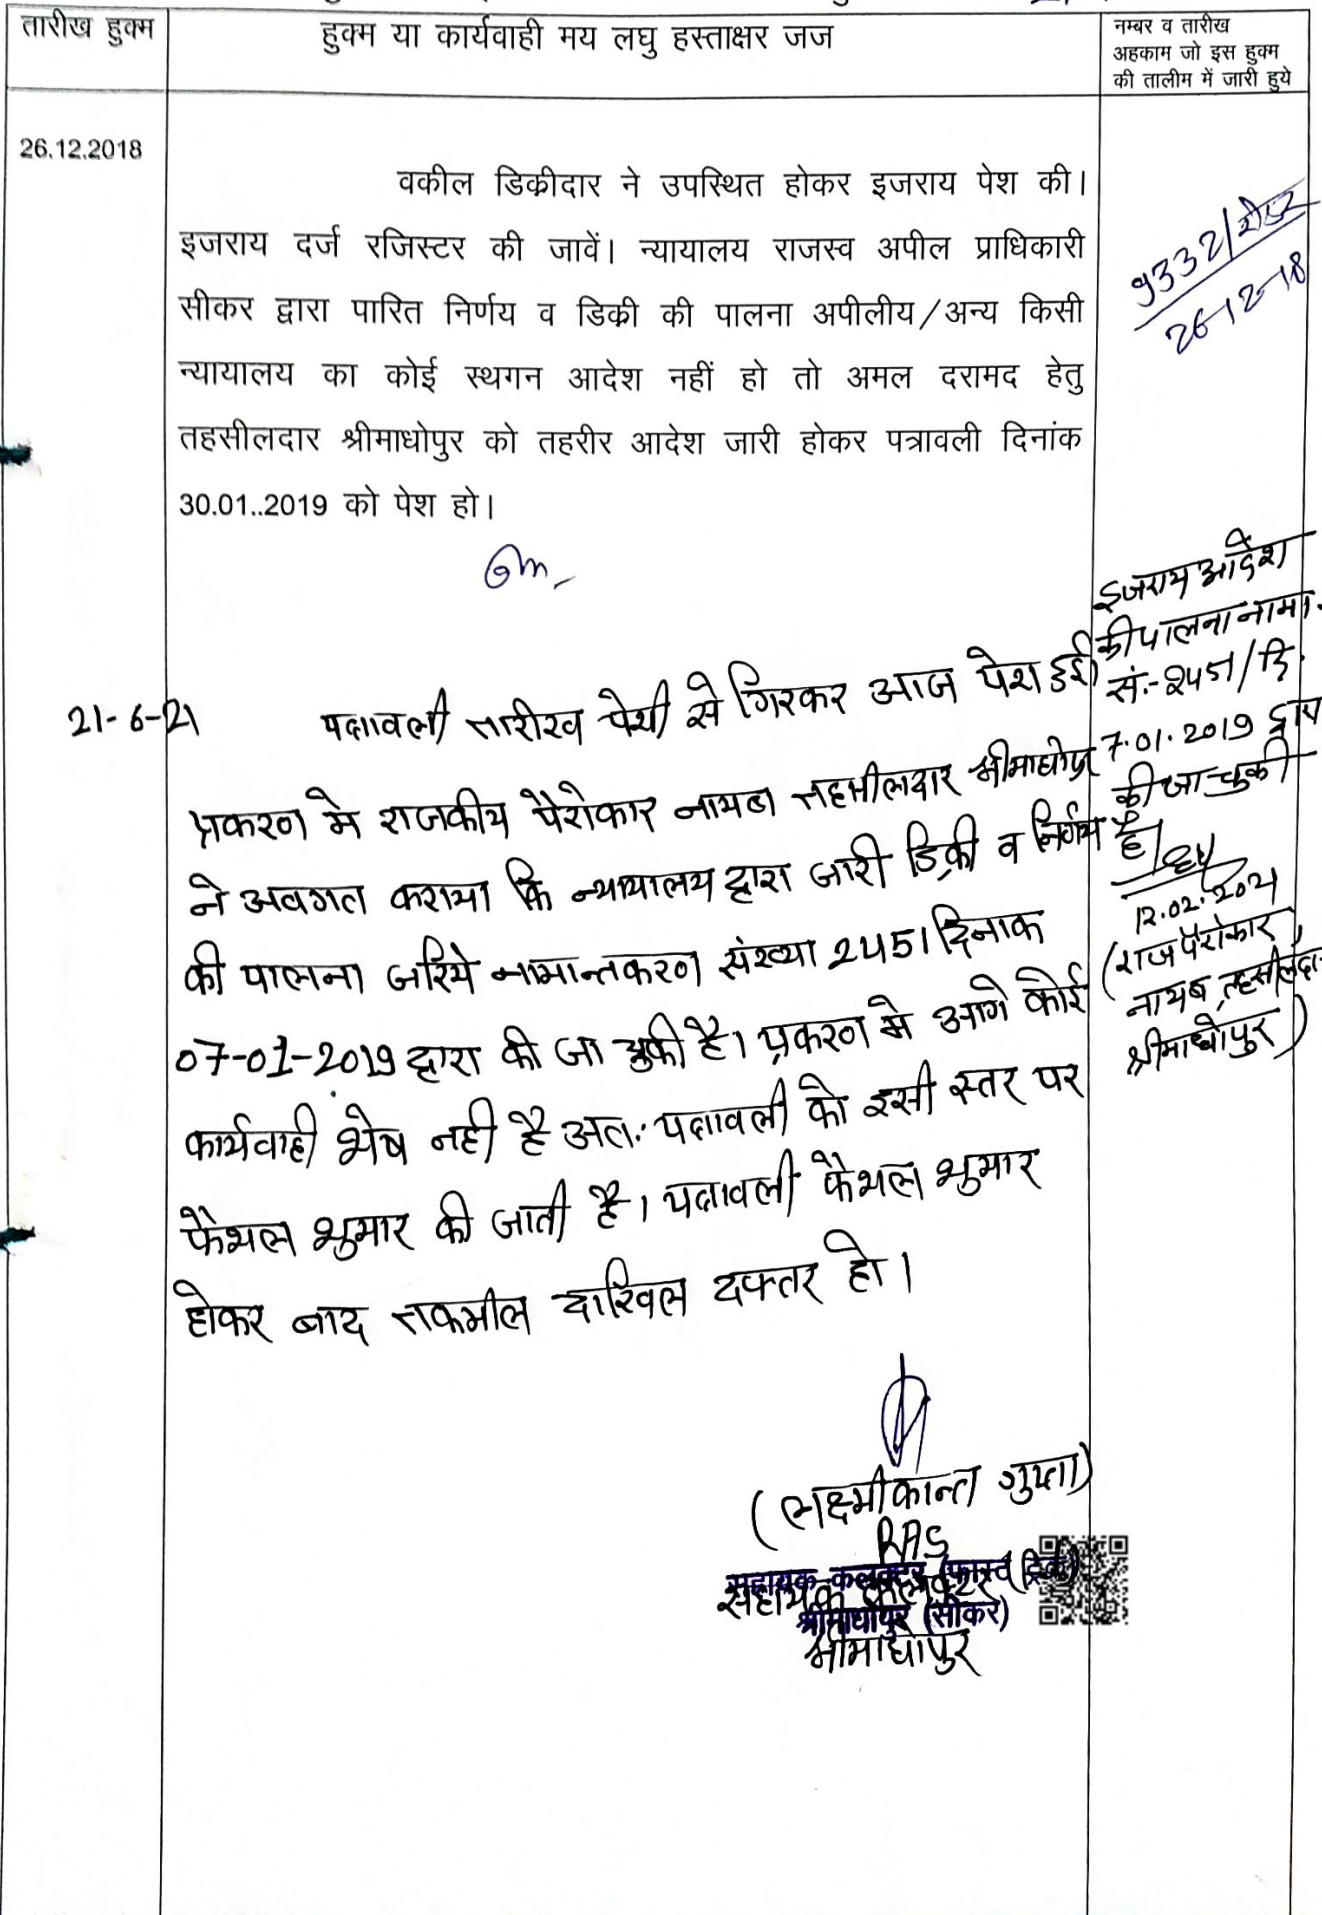 तारीख हुक्म
हुक्म या कार्यवाही मय लघु हस्ताक्षर जज
नम्बर व तारीख
अहकाम जो इस हुक्म
की तालीम में जारी हुये
26.12.2018
वकील डिक्रीदार ने उपस्थित होकर इजराय पेश की।
इजराय दर्ज रजिस्टर की जावें। न्यायालय राजस्व अपील प्राधिकारी
सीकर द्वारा पारित निर्णय व डिक्री की पालना अपीलीय/अन्य किसी
न्यायालय का कोई स्थगन आदेश नहीं हो तो अमल दरामद हेतु
तहसीलदार श्रीमाधोपुर को तहरीर आदेश जारी होकर पत्रावली दिनांक
30.01..2019 को पेश हो।
9332/
26-12-18
21-6-21
पत्रावली तारीख पेशी से गिरकर आज पेश हुई
प्रकरण मे राजकीय पैरोकार नायब तहसीलदार श्रीमाधोपुर
ने अवगत कराया कि न्यायालय द्वारा जारी डिक्री व निर्णय
की पालना जरिये नामान्तकरण संख्या 2451 दिनाक
07-01-2019 द्वारा की जा चुकी है। प्रकरण मे आगे कोई
कार्यवाही शेष नही है अतः पत्रावली को इसी स्तर पर
फैशल शुमार की जाती है। पत्रावली फैशल शुमार
होकर बाद तकमील दाखिल दफ्तर हो।
इजराय आदेश
की पालना नामा.
सं.-2451/दि.
7.01.2019 द्वारा
की जा चुकी
है।
12.02.2021
(राज पैरोकार
नायब तहसीलदार
श्रीमाधोपुर)
(लक्ष्मीकान्त गुप्ता)
RAS
सहायक कलक्टर (फास्ट ट्रेक)
श्रीमाधोपुर (सीकर)
सहायक कलक्टर
श्रीमाधोपुर